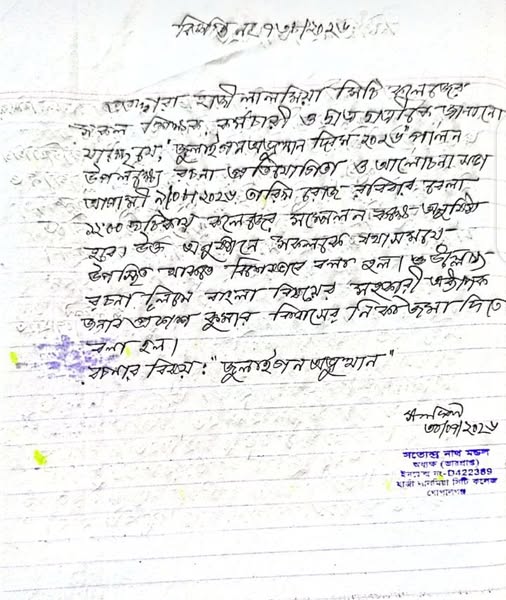 বিজ্ঞপ্তি নং ৭৩/২০২৬
এতদ্বারা হাজী লালমিয়া সিটি কলেজের
সকল শিক্ষক, কর্মচারী ও ছাত্র ছাত্রীকে জানানো
যাচ্ছে যে, "জুলাই গনঅভ্যুত্থান দিবস ২০২৬" পালন
উপলক্ষ্যে রচনা প্রতিযোগিতা ও আলোচনা সভা
আগামী তারিখ রোজ রবিবার বেলা
১২:০০ ঘটিকায় কলেজের সম্মেলন কক্ষে অনুষ্ঠিত
হবে। উক্ত অনুষ্ঠানে সকলকে যথাসময়ে
উপস্থিত থাকতে বিশেষভাবে বলা হল। উল্লেখ্য
রচনা লিখে বাংলা বিষয়ের সহকারী অধ্যাপক
জনাব প্রকাশ কুমার বিশ্বাসের নিকট জমা দিতে
বলা হল।
রচনার বিষয়: "জুলাই গনঅভ্যুত্থান"
সত্যেন্দ্র নাথ মন্ডল
অধ্যক্ষ (ভারপ্রাপ্ত)
ইনডেক্স নং-D422389
হাজী লালমিয়া সিটি কলেজ
গোপালগঞ্জ